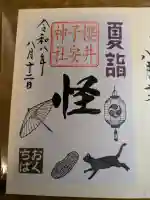 夏詣
櫻井
子安
神社
怪
令和八年
八月十二日
おく
ちば